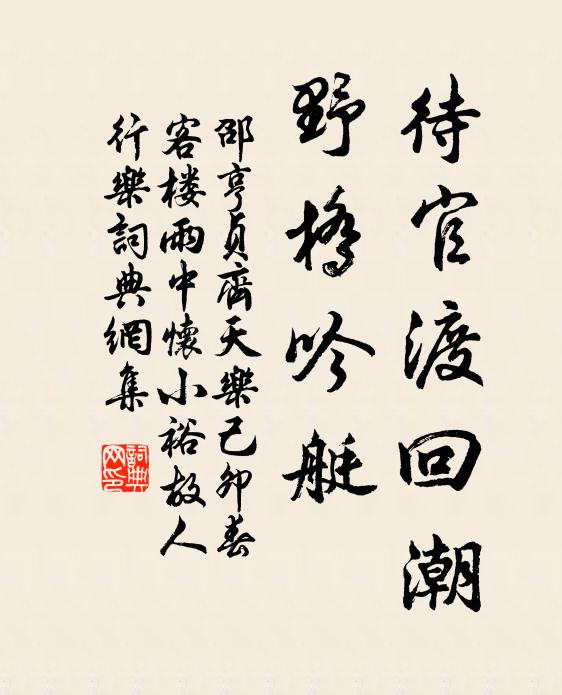 待官渡回潮
野橋吟艇
邵亨貞齊天樂己卯春
客楼雨中懷小裕故人
行樂詞典網集
詞典
网印